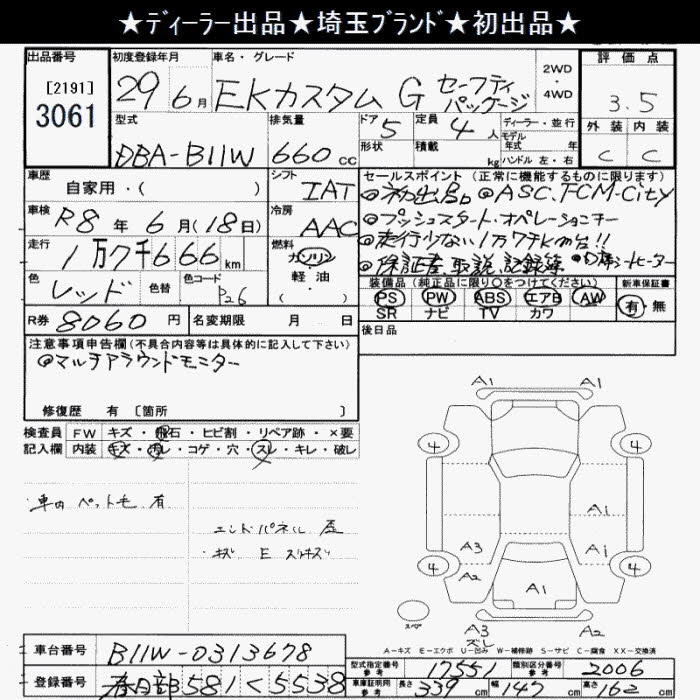 ★ディーラー出品★埼玉ブランド★初出品★
出品番号
[2191]
3061
初度登録年月
29 6月
車名・グレード
EKカスタム G セーフティパッケージ
2WD
・
4WD
評価点
3.5
外装 内装
C C
型式
DBA-B11W
排気量
660 cc
ドア 5
形状
定員 4 人
積載 kg
ディーラー・並行
モデル
年式 年
ハンドル 左・右
車歴
自家用・( )
シフト
IAT
セールスポイント (正常に機能するものに限ります)
◎初出品 ◎ASC.FCM-City
◎プッシュスタート・オペレーションキー
◎走行少ない1万7千km台!!
◎保証書、取説、記録簿 ◎D席シートヒーター
車検
R8 年 6 月(18日)
冷房
AAC
走行
1万7千666 km
燃料
ガソリン
・
軽・油
・
( )
色
レッド
色替
色コード
P26
装備品 (純正品に限り○をつけてください)
PS PW ABS エアB AW
SR ナビ TV カワ
新車保証書
有・無
R券 8060 円
名変期限 月 日
後日品
注意事項申告欄(不具合内容等は具体的に記入して下さい)
◎マルチアラウンドモニター
修復歴 有 〔箇所 〕
検査員
記入欄
FW キズ・飛石・ヒビ割・リペア跡・×要
内装 キズ・汚レ・コゲ・穴・スレ・キレ・破レ
車内 ペット毛 有
エンドパネル 歪
キズ E スリキズ
A1 A1
4 4
A1
A3 A1
4 4
A2
A1
スペア
A3 A2
ズレ
A-キズ E-エクボ U-凹み W-補修跡 S-サビ C-腐食 XX-交換済
車台番号 B11W-0313678
登録番号 春日部 581 く 5538
型式指定番号
参考
17551
類別区分番号
参考
2006
車庫証明用
参考
長さ 339 cm
幅 147 cm
高さ 162 cm